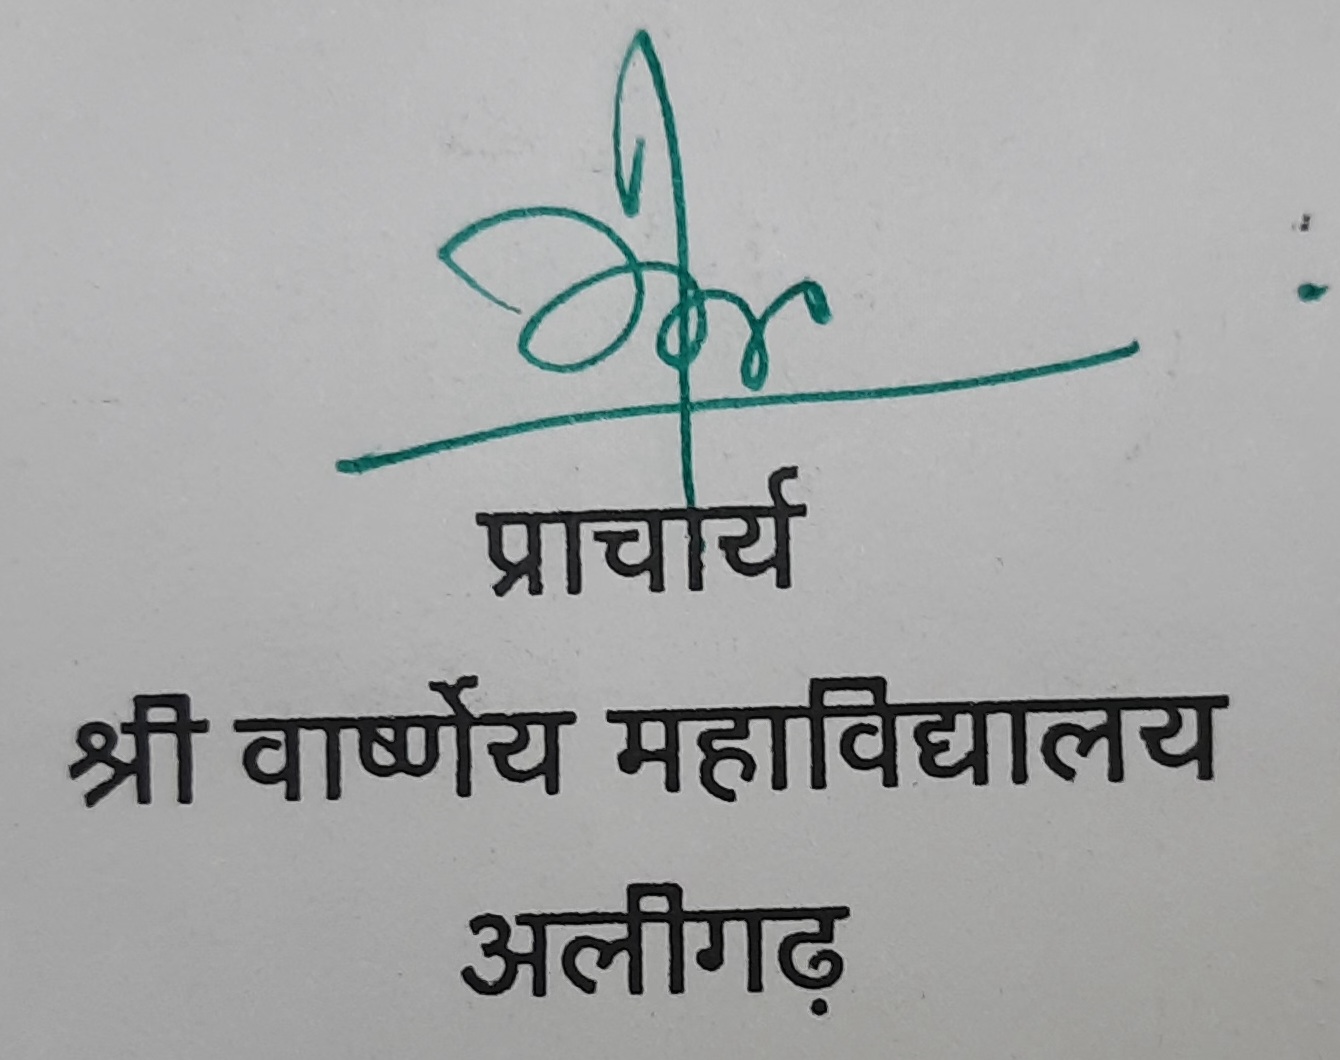 प्राचार्य
श्री वार्ष्णेय महाविद्यालय
अलीगढ़